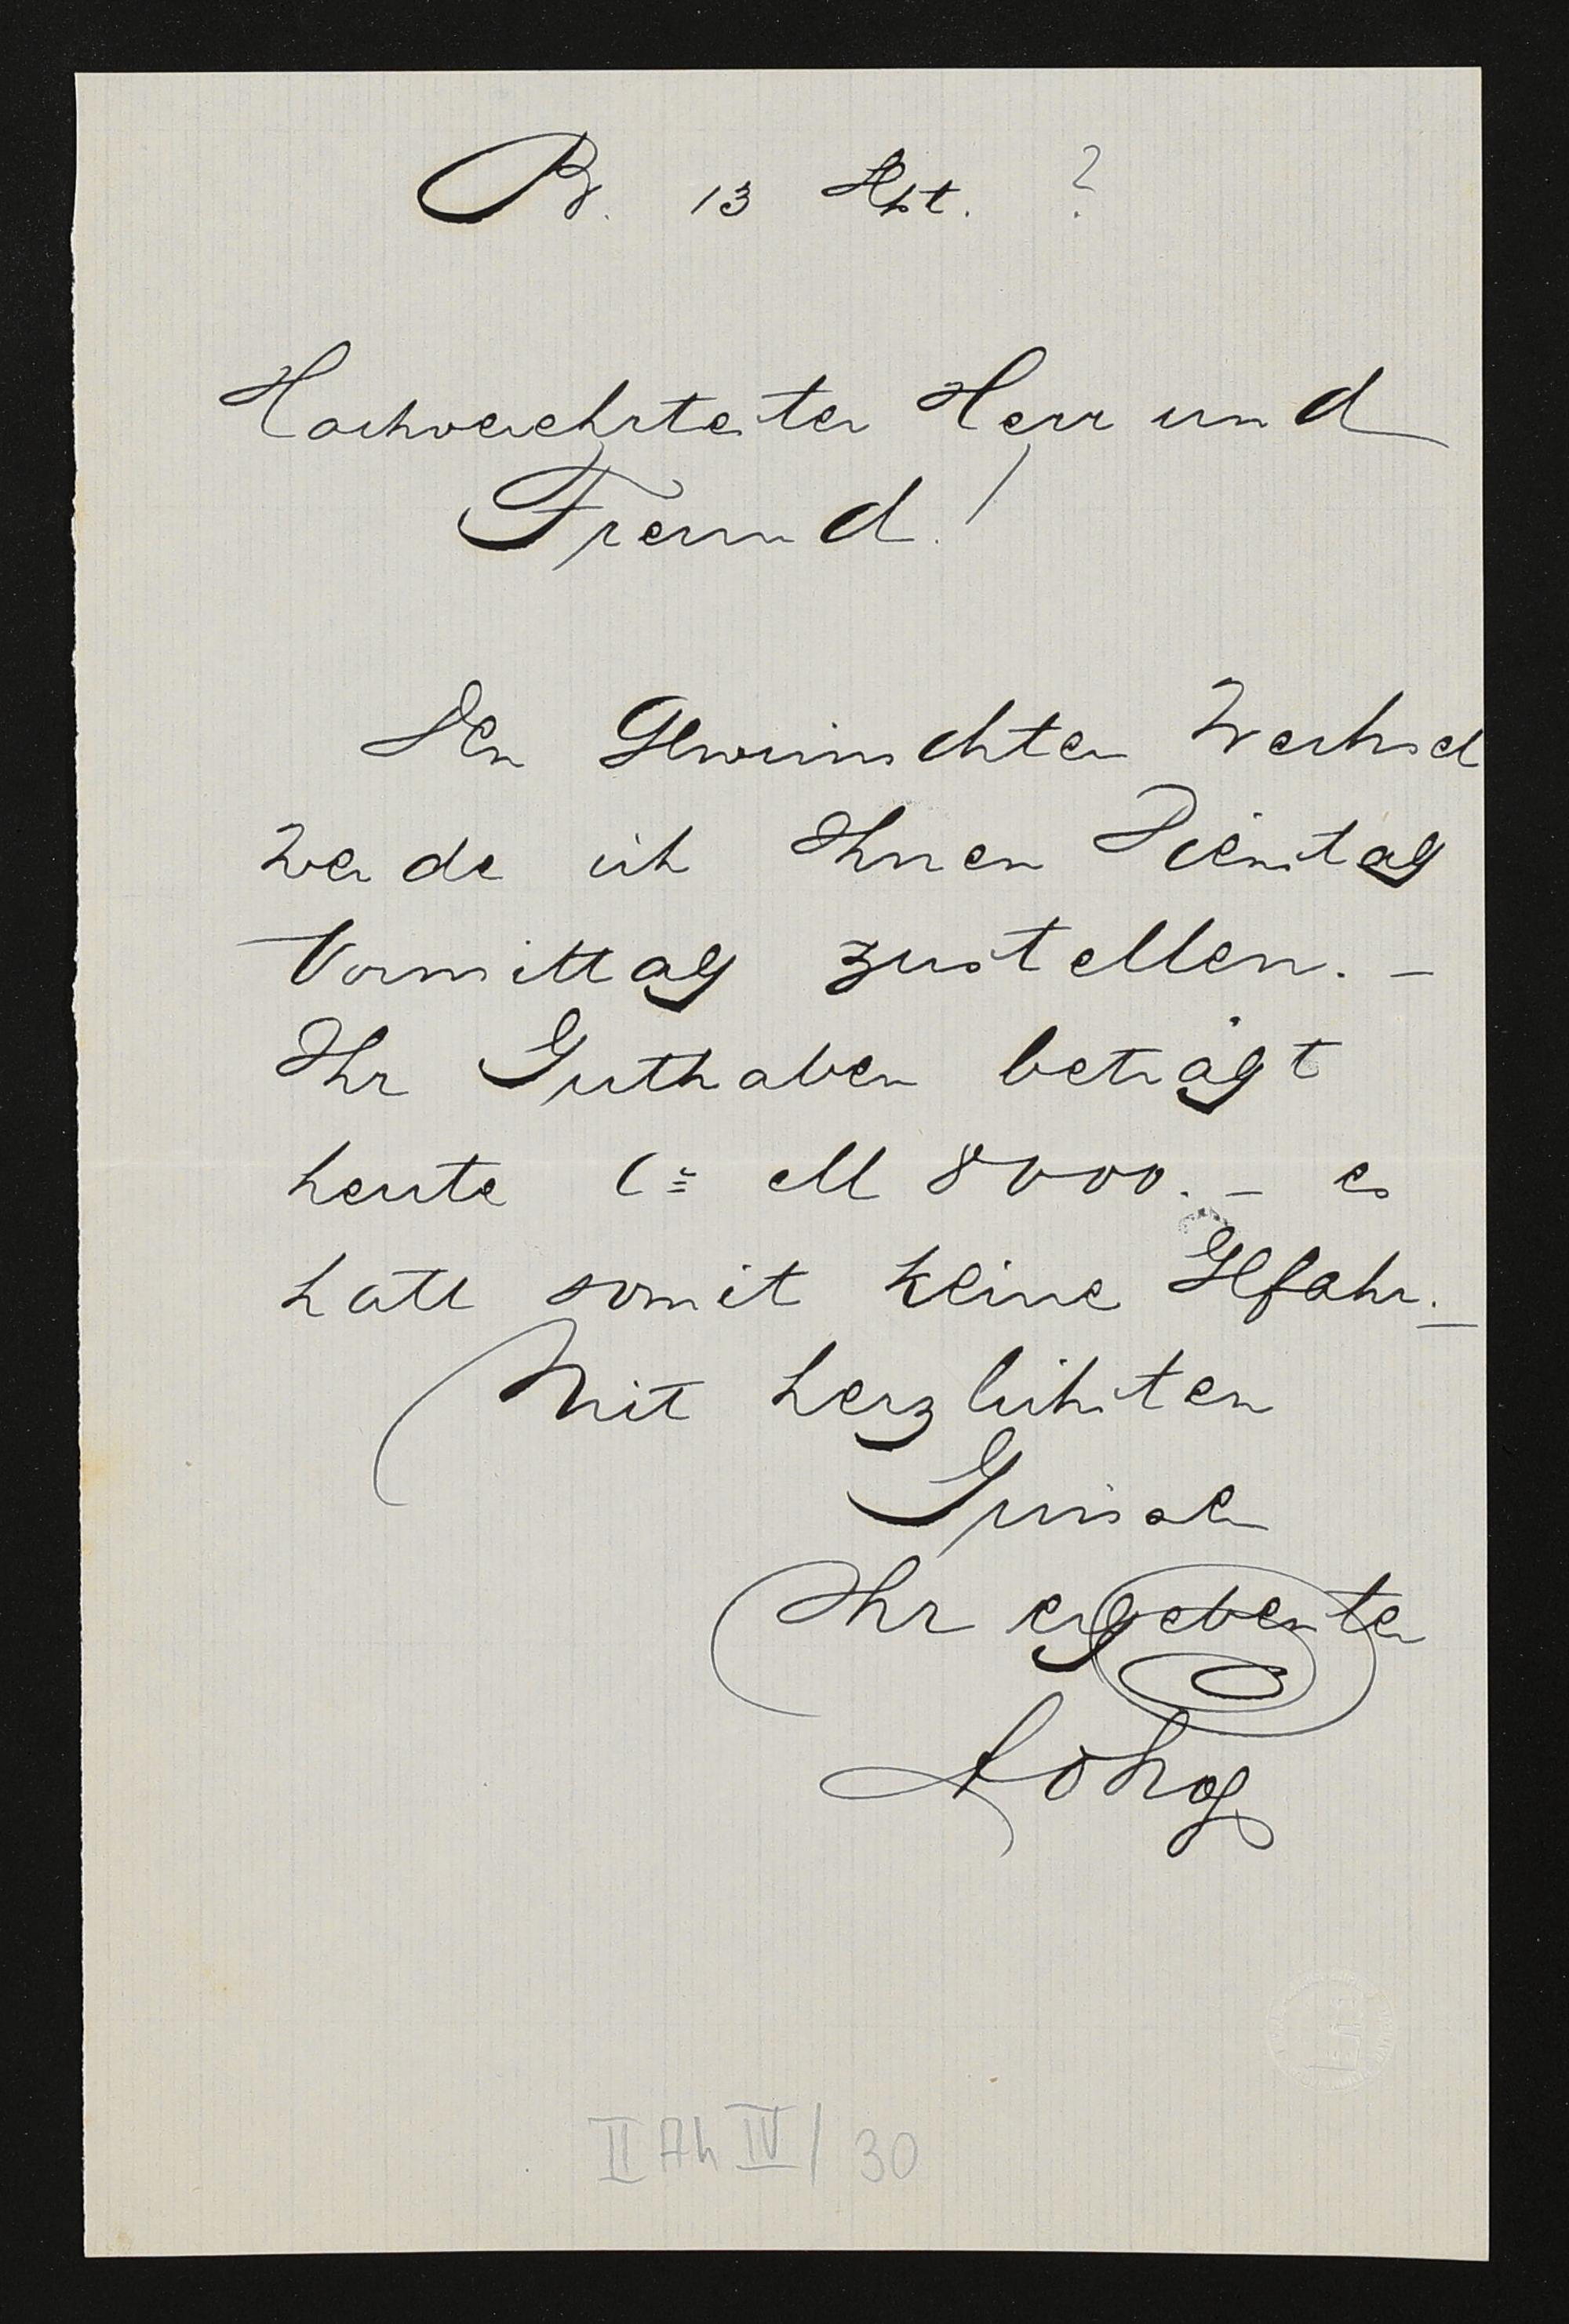 B. 13 Spt. ?
Hochverehrtester Herr und
Freund!
Den Gewünschten Wechsel
werde ich Ihnen Dienstag
Vormittag zustellen. –
Ihr Guthaben beträgt
heute Ca M 8000. – es
hatte somit keine Gefahr. –
Mit herzlichsten
Grüssen
Ihr ergebenster
II Ah IV / 30